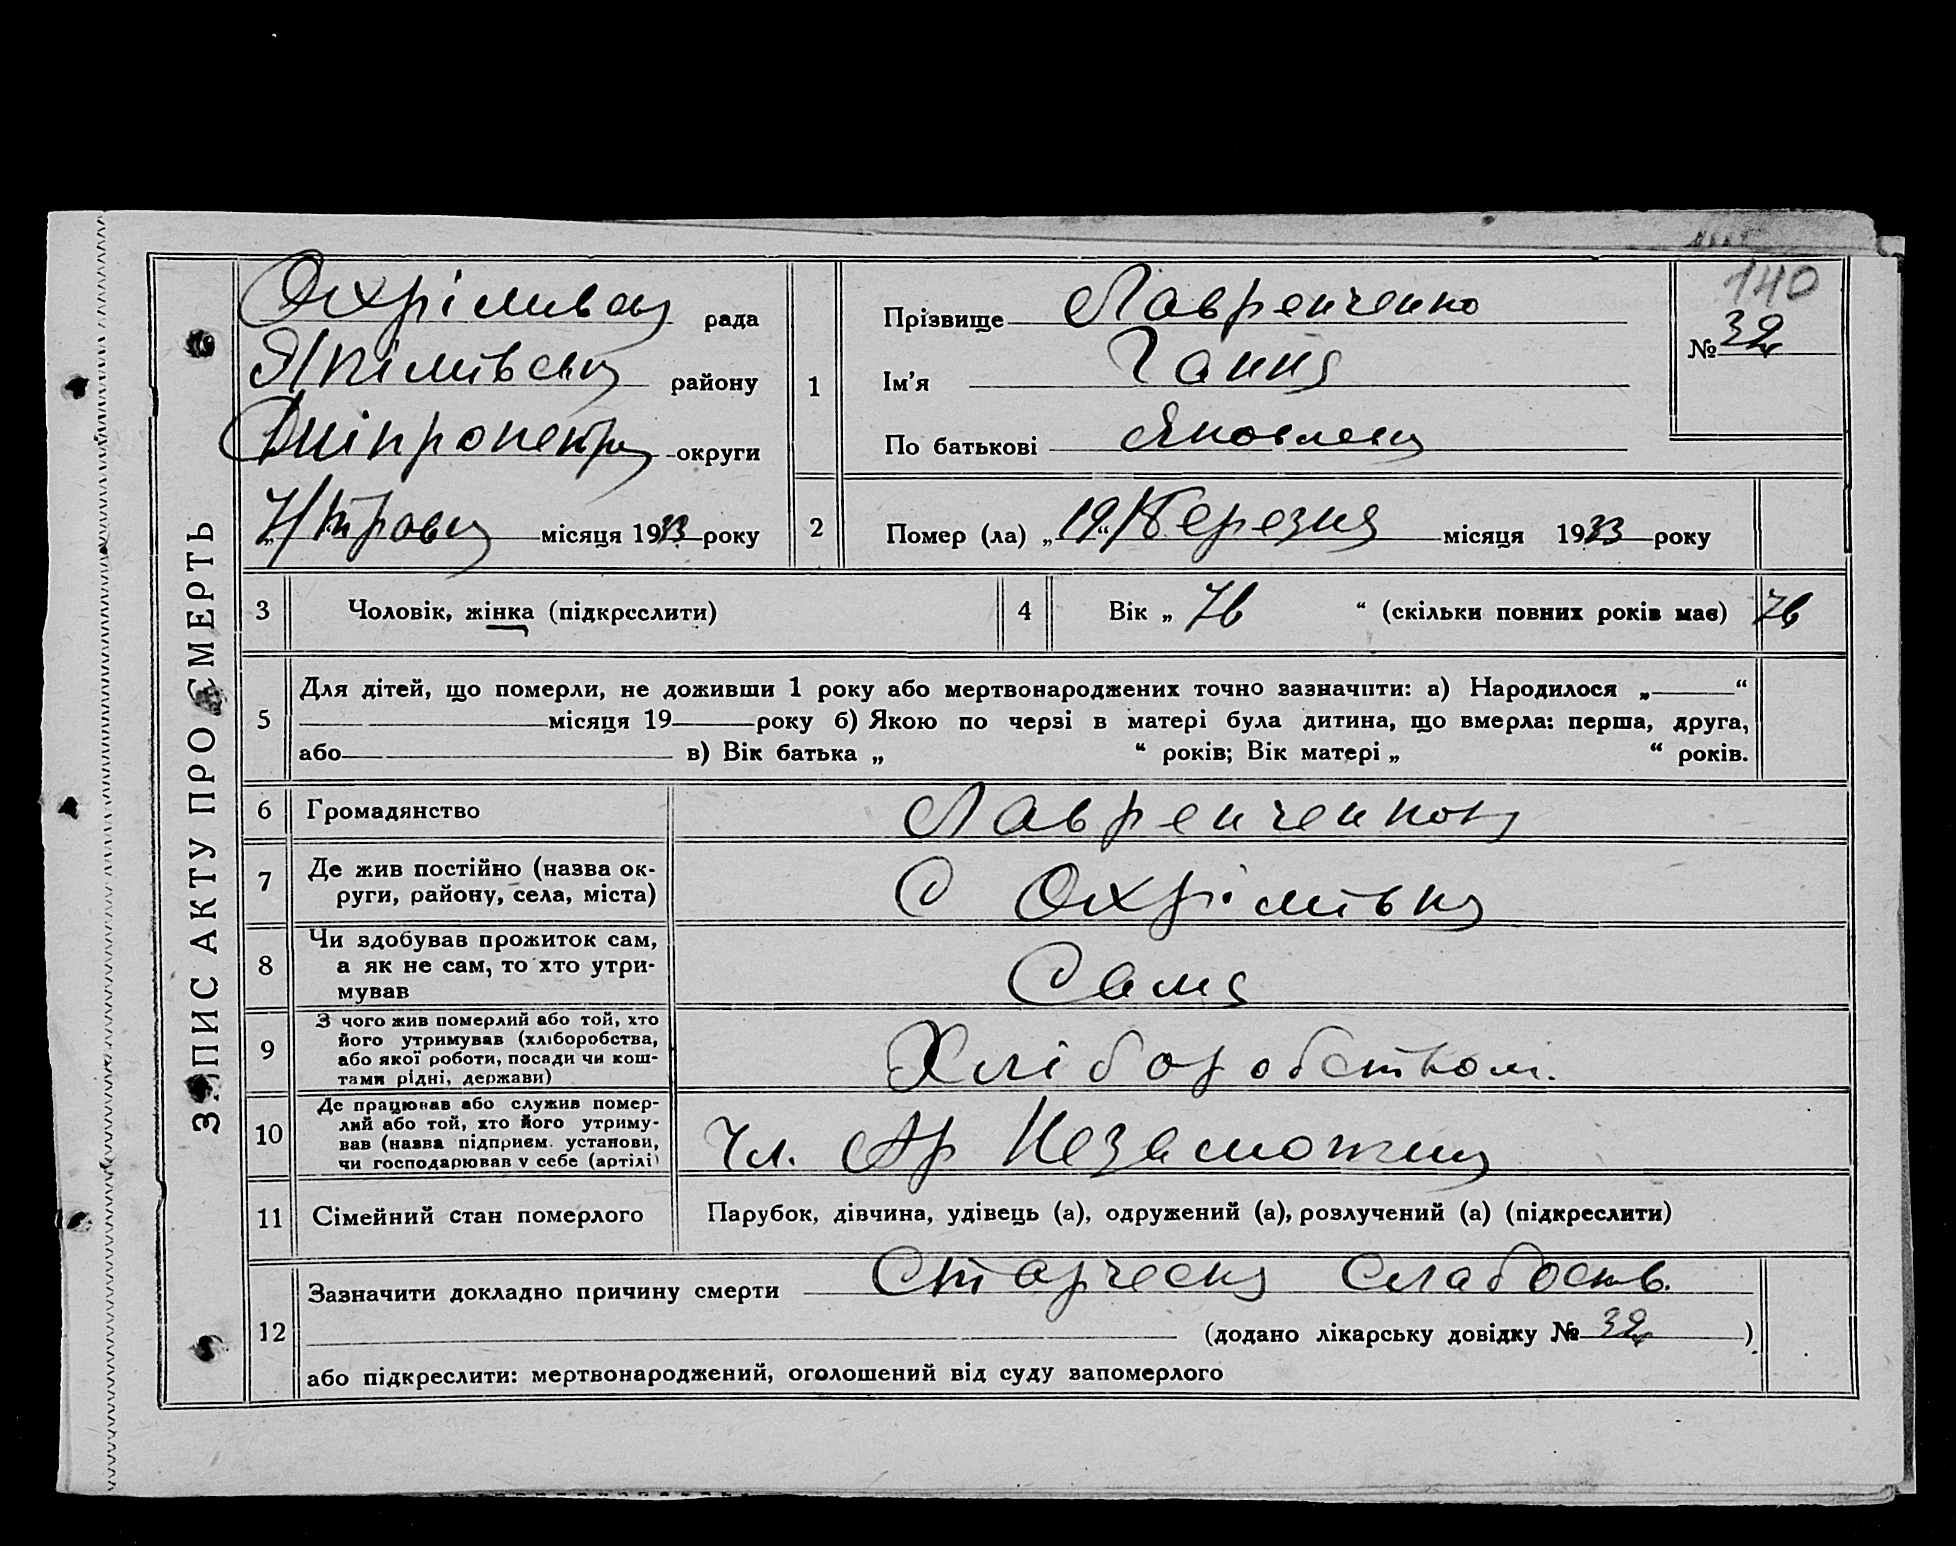 ЗАПИС АКТУ ПРО СМЕРТЬ
140
Охрімивськ рада
Якімівськ району
Дніпропетр округи
місяця 1933 року
1
Прізвище Лавренченко
Ім'я Ганна
По батькові Яковлевна
№ 32
2
Помер (ла) „19“ Березня місяця 1933 року
3 Чоловік, жінка (підкреслити)
4 Вік „ 76 “ (скільки повних років має) 76
5
Для дітей, що померли, не доживши 1 року або мертвонароджених точно зазначити: а) Народилося „ “
місяця 19 року б) Якою по черзі в матері була дитина, що вмерла: перша, друга,
або в) Вік батька „ “ років; Вік матері „ “ років.
6 Громадянство Лавренченкова
7 Де жив постійно (назва ок-
руги, району, села, міста) С Охрімівка
8 Чи здобував прожиток сам,
а як не сам, то хто утри-
мував Сама
9 З чого жив померлий або той, хто
його утримував (хліборобства,
або якої роботи, посади чи кош-
тами рідні, держави) Хліборобством.
10 Де працював або служив помер-
лий або той, хто його утриму-
вав (назва підприєм. установи,
чи господарював у себе (артілі) Чл. Ар Незаможник
11 Сімейний стан померлого Парубок, дівчина, удівець (а), одружений (а), розлучений (а) (підкреслити)
12
Зазначити докладно причину смерти Старческа Слабость.
(додано лікарську довідку № 32 )
або підкреслити: мертвонароджений, оголошений від суду запомерлого